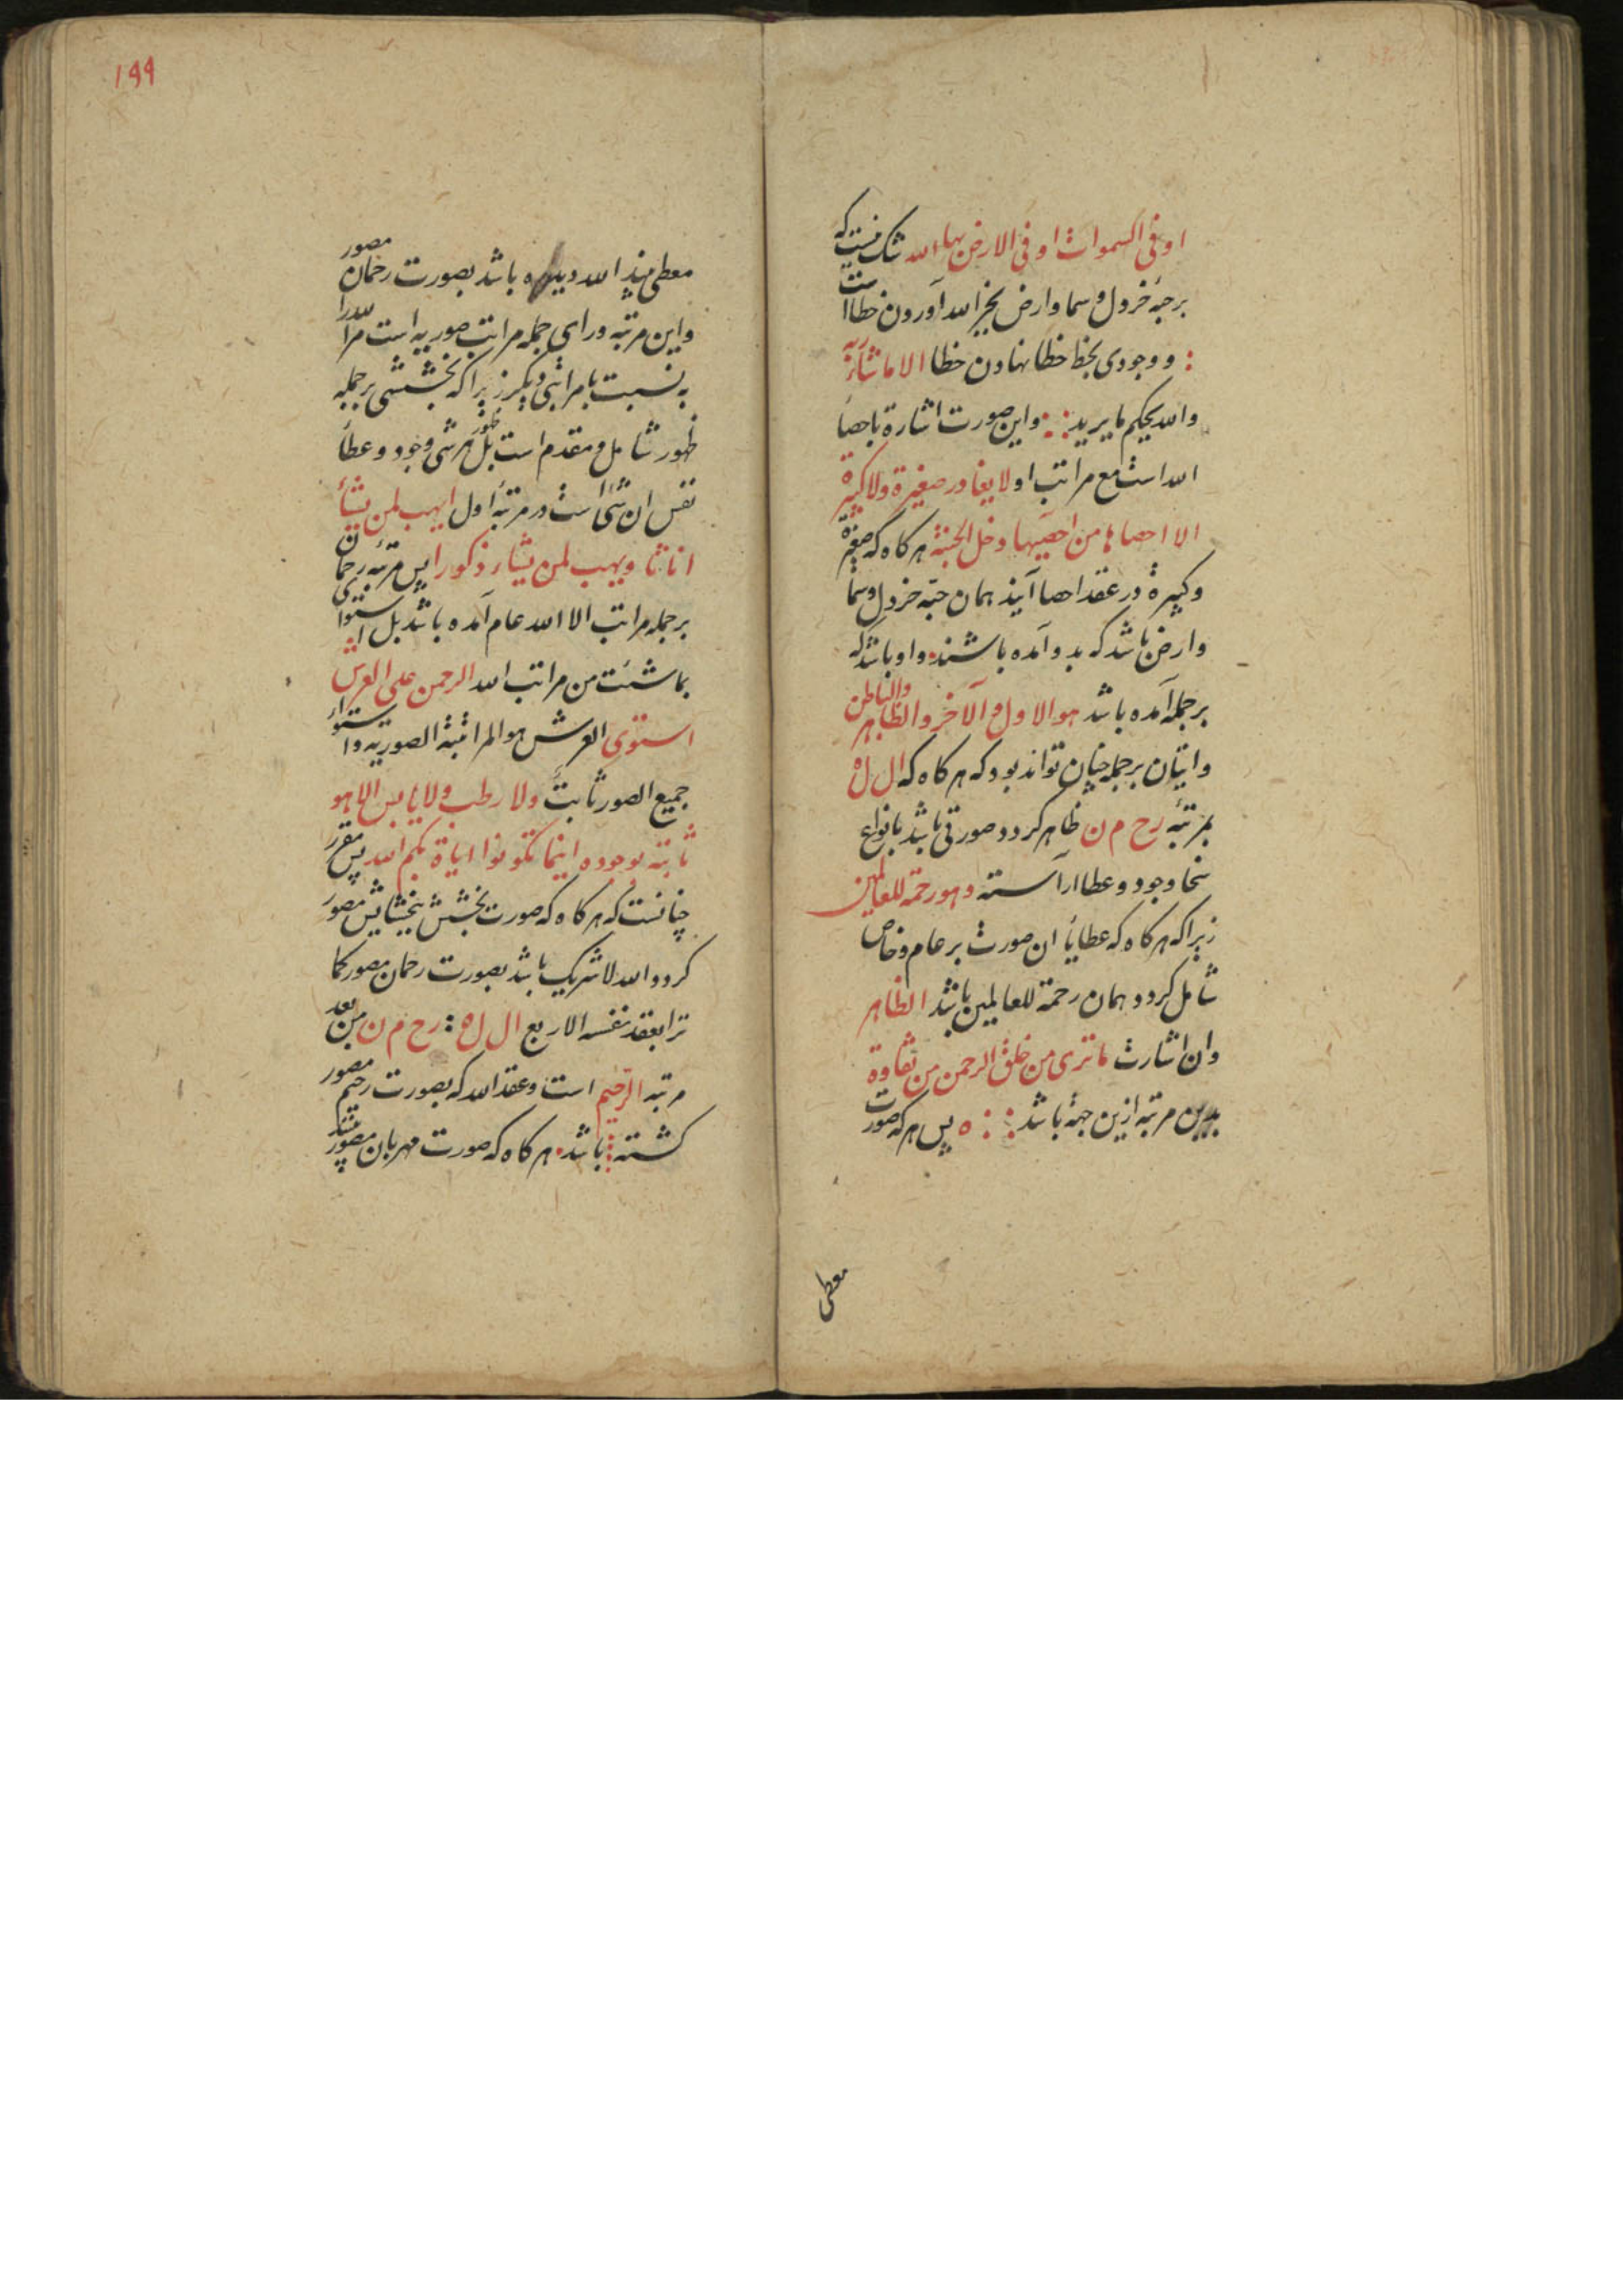 او فی السموات او فی الارض بها الله شک نیست که
بر حبهٔ خردل و سما و ارض بجز الله آوردن خطا است
و وجودی بخط خطا نهادن خطا الا ما شاء ربه
والله یحکم ما یرید و این صورت اشارة باحصا
الله است مع مراتب او لا یغادر صغیرة ولا کبیرة
الا احصاها من احصیها دخل الجنة هر کاه که صغیرة
و کبیرة در عقد احصا آیند همان حبه خردل و سما
و ارض باشد که بدو آمده باشند و او باشد که
بر جمله آمده باشد هو الاول و الآخر و الظاهر والباطن
و اتیان بر جمله چنان تواند بود که هر کاه که ال ل ه
بمرتبهٔ رح م ن ظاهر کردد صورتی باشد بانواع
سخا وجود و عطا آراسته و هو رحمة للعالمین
زیرا که هر کاه که عطایا ان صورت بر عام و خاص
شامل کردد همان رحمة للعالمین باشد الظاهر
وان اشارت ما تری من خلق الرحمن من تفاوة
بدین مرتبه ازین جهة باشد ه پس هر که صورت
معطی
۱۹۹
معطی بیند الله دیده باشد بصورت رحمان مصور
و این مرتبه ورای جمله مراتب صوریه است مر الله را
به نسبت با مراتبی دیکر زیرا که بخششی بر جمله
ظهور شامل و مقدم است بل ظهور هر شی وجود و عطا
نفس ان شیٔ است در مرتبهٔ اول یهب لمن یشأ
اناثا و یهب لمن یشاء ذکورا پس مرتبه رحمان
بر جمله مراتب الا الله عام آمده باشد بل استوا
بما شئت من مراتب الله الرحمن علی العرش
استوی العرش هو المراتبة الصوریة و استواء
جمیع الصور ثابت ولا رطب ولا یابس الا هو
ثابتة بوجوده اینما تکونوا ایاة بکم الله پس مقرر
چنانست که هر کاه که صورت بخشش ببخشایش مصور
کردد الله لا شریک باشد بصورت رحمان مصور کما
ترا بعقد نفسه الاربع ال ل ه رح م ن من بعد
مرتبه الرحیم است و عقد الله که بصورت رحیم مصور
کشته باشد هر کاه که صورت مهربان مصور